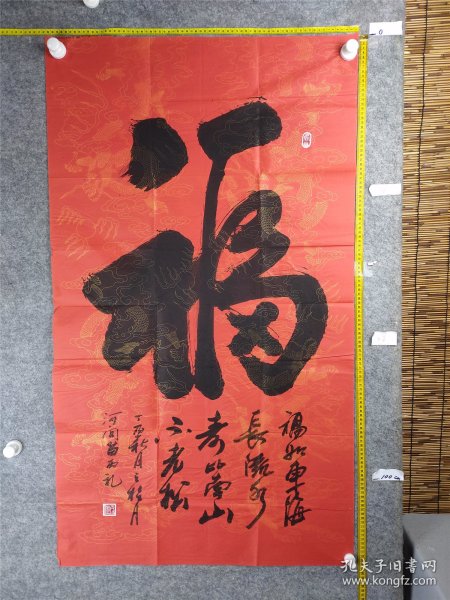 福
福如東海
長流水
寿比南山
不老松
丁酉秋月
河间苗
0
100cm
孔夫子旧书网
www.kongfz.com